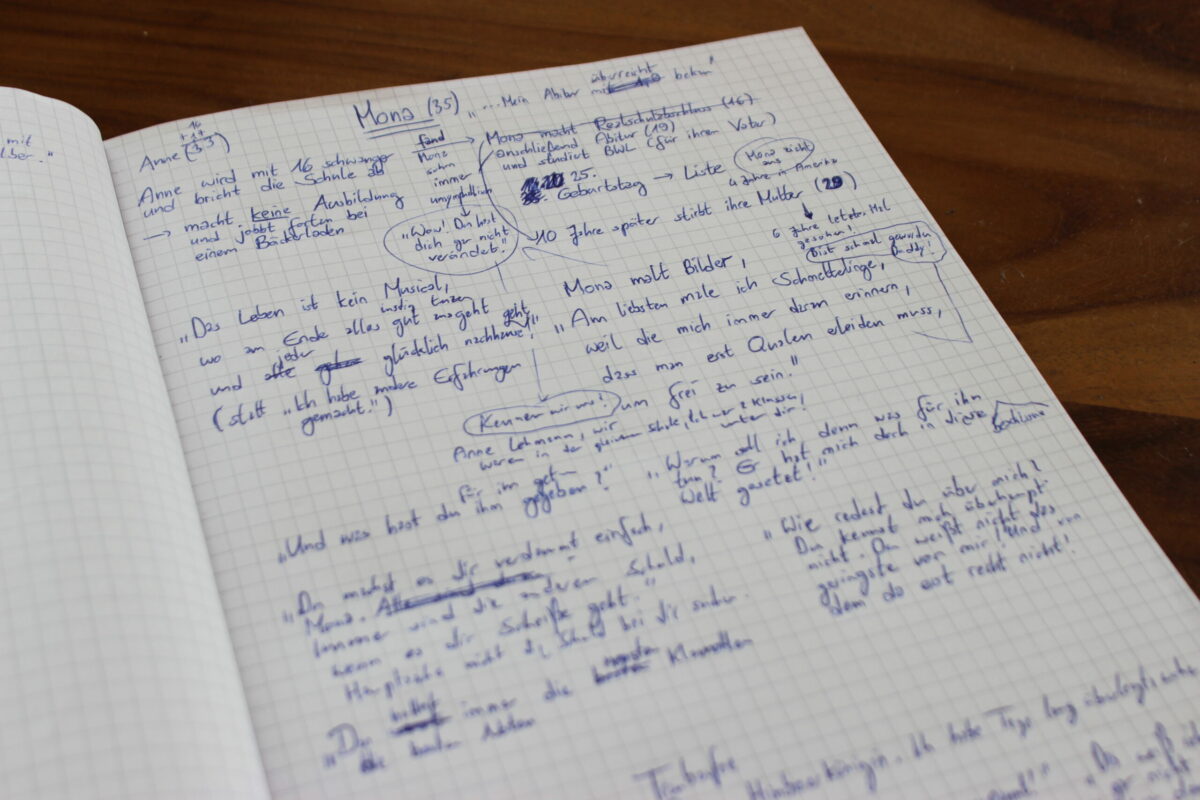 mit
Mona (35)
"...Mein Abitur überreicht bekam"
16
+17
Anne (33)
Anne wird mit 16 schwanger
und bricht die Schule ab
→ macht keine Ausbildung
und jobbt fortan bei
einem Bäckerladen
fand
Mona
schon
immer
unsympathisch
"Wow! Du hast
dich gar nicht
verändert."
Mona macht Realschulabschluss (16)
anschließend Abitur (19)
und studiert BWL (für ihren Vater)
25.
Geburtstag → Liste
Mona zieht
aus
4 Jahre in Amerika
10 Jahre später stirbt ihre Mutter (29)
6 Jahre letztes Mal
gesehen!
Bist schmal geworden
Daddy!
"Das Leben ist kein Musical,
wo am Ende alles gut ausgeht
lustig tanzen
und jeder glücklich nachhause geht!"
(statt "Ich habe andere Erfahrungen
gemacht.")
Mona malt Bilder,
"Am liebsten male ich Schmetterlinge,
weil die mich immer daran erinnern,
dass man erst Qualen erleiden muss,
um frei zu sein."
Kennen wir uns?
Anne Lehmann, wir
waren in der gleichen Schule, ich war 2 Klassen
unter dir!
"Und was hast du für ihn getan
ihm gegeben?"
"Warum soll ich denn was für ihn
tun? Er hat mich doch in diese
Welt gesetzt!"
"Du machst es dir verdammt einfach,
Mona.
Immer sind die anderen Schuld,
wenn es dir Scheiße geht."
Hauptsache nicht die Schuld bei dir suchen.
"Wie redest du über mich?
Du kennst mich überhaupt
nicht. Du weißt nicht das
geringste von mir! Und von
dem da erst recht nicht!
"Du
immer die Klamotten
Himbeerkönigin. Ich habe Tage lang überlegt
"Du